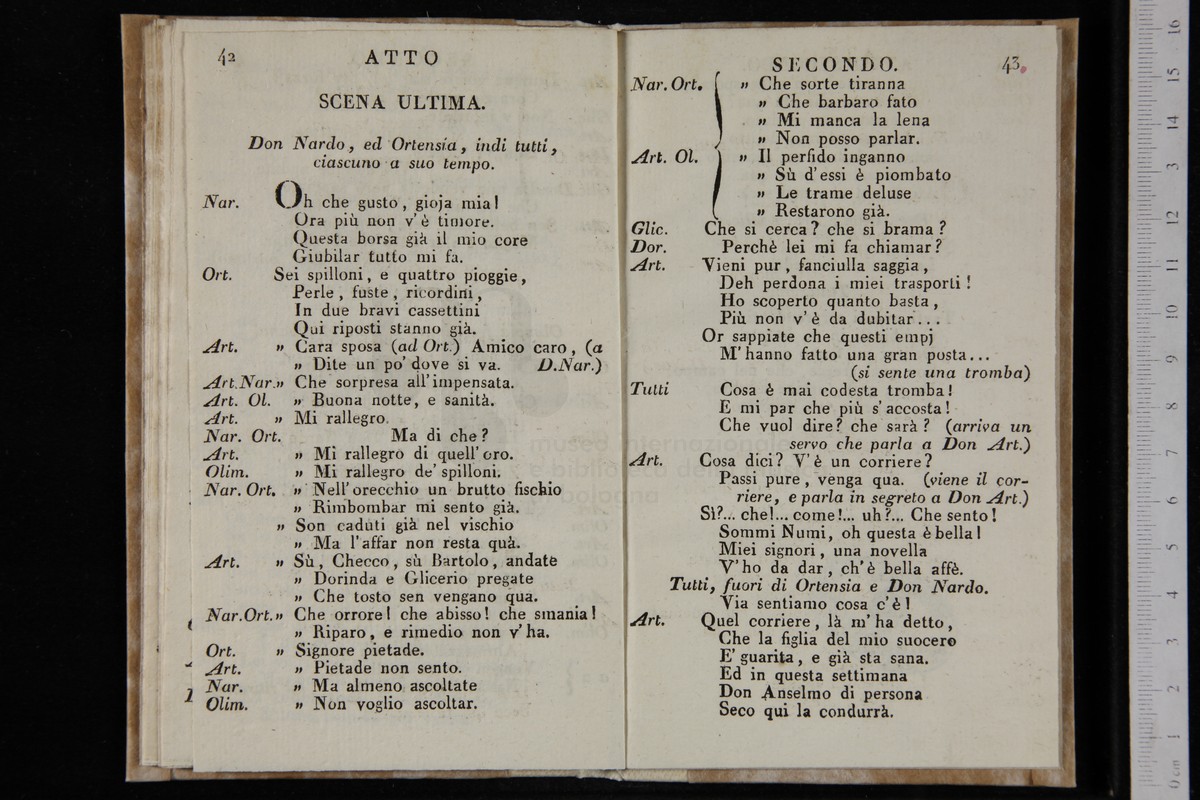 42 ATTO
SCENA ULTIMA.
Don Nardo, ed Ortensia, indi tutti,
ciascuno a suo tempo.
Nar. Oh che gusto, gioja mia!
Ora più non v'è timore.
Questa borsa già il mio core
Giubilar tutto mi fa.
Ort. Sei spilloni, e quattro pioggie,
Perle, fuste, ricordini,
In due bravi cassettini
Qui riposti stanno già.
Art. " Cara sposa (ad Ort.) Amico caro, (a
" Dite un po' dove si va. D.Nar.)
Art.Nar." Che sorpresa all'impensata.
Art. Ol. " Buona notte, e sanità.
Art. " Mi rallegro.
Nar. Ort. Ma di che?
Art. " Mi rallegro di quell'oro.
Olim. " Mi rallegro de' spilloni.
Nar. Ort. " Nell'orecchio un brutto fischio
" Rimbombar mi sento già.
" Son caduti già nel vischio
" Ma l'affar non resta quà.
Art. " Sù, Checco, sù Bartolo, andate
" Dorinda e Glicerio pregate
" Che tosto sen vengano qua.
Nar.Ort." Che orrore! che abisso! che smania!
" Riparo, e rimedio non v'ha.
Ort. " Signore pietade.
Art. " Pietade non sento.
Nar. " Ma almeno ascoltate
Olim. " Non voglio ascoltar.
SECONDO. 43.
Nar. Ort. " Che sorte tiranna
" Che barbaro fato
" Mi manca la lena
" Non posso parlar.
Art. Ol. " Il perfido inganno
" Sù d'essi è piombato
" Le trame deluse
" Restarono già.
Glic. Che si cerca? che si brama?
Dor. Perchè lei mi fa chiamar?
Art. Vieni pur, fanciulla saggia,
Deh perdona i miei trasporti!
Ho scoperto quanto basta,
Più non v'è da dubitar...
Or sappiate che questi empj
M'hanno fatto una gran posta...
(si sente una tromba)
Tutti Cosa è mai codesta tromba!
E mi par che più s'accosta!
Che vuol dire? che sarà? (arriva un
servo che parla a Don Art.)
Art. Cosa dici? V'è un corriere?
Passi pure, venga qua. (viene il cor-
riere, e parla in segreto a Don Art.)
Sì?... che!... come!... uh?... Che sento!
Sommi Numi, oh questa è bella!
Miei signori, una novella
V'ho da dar, ch'è bella affè.
Tutti, fuori di Ortensia e Don Nardo.
Via sentiamo cosa c'è!
Art. Quel corriere, là m'ha detto,
Che la figlia del mio suocero
E' guarita, e già sta sana.
Ed in questa settimana
Don Anselmo di persona
Seco qui la condurrà.
museo internazionale
e biblioteca della
bologna
0 cm 1 2 3 4 5 6 7 8 9 10 11 12 13 14 15 16